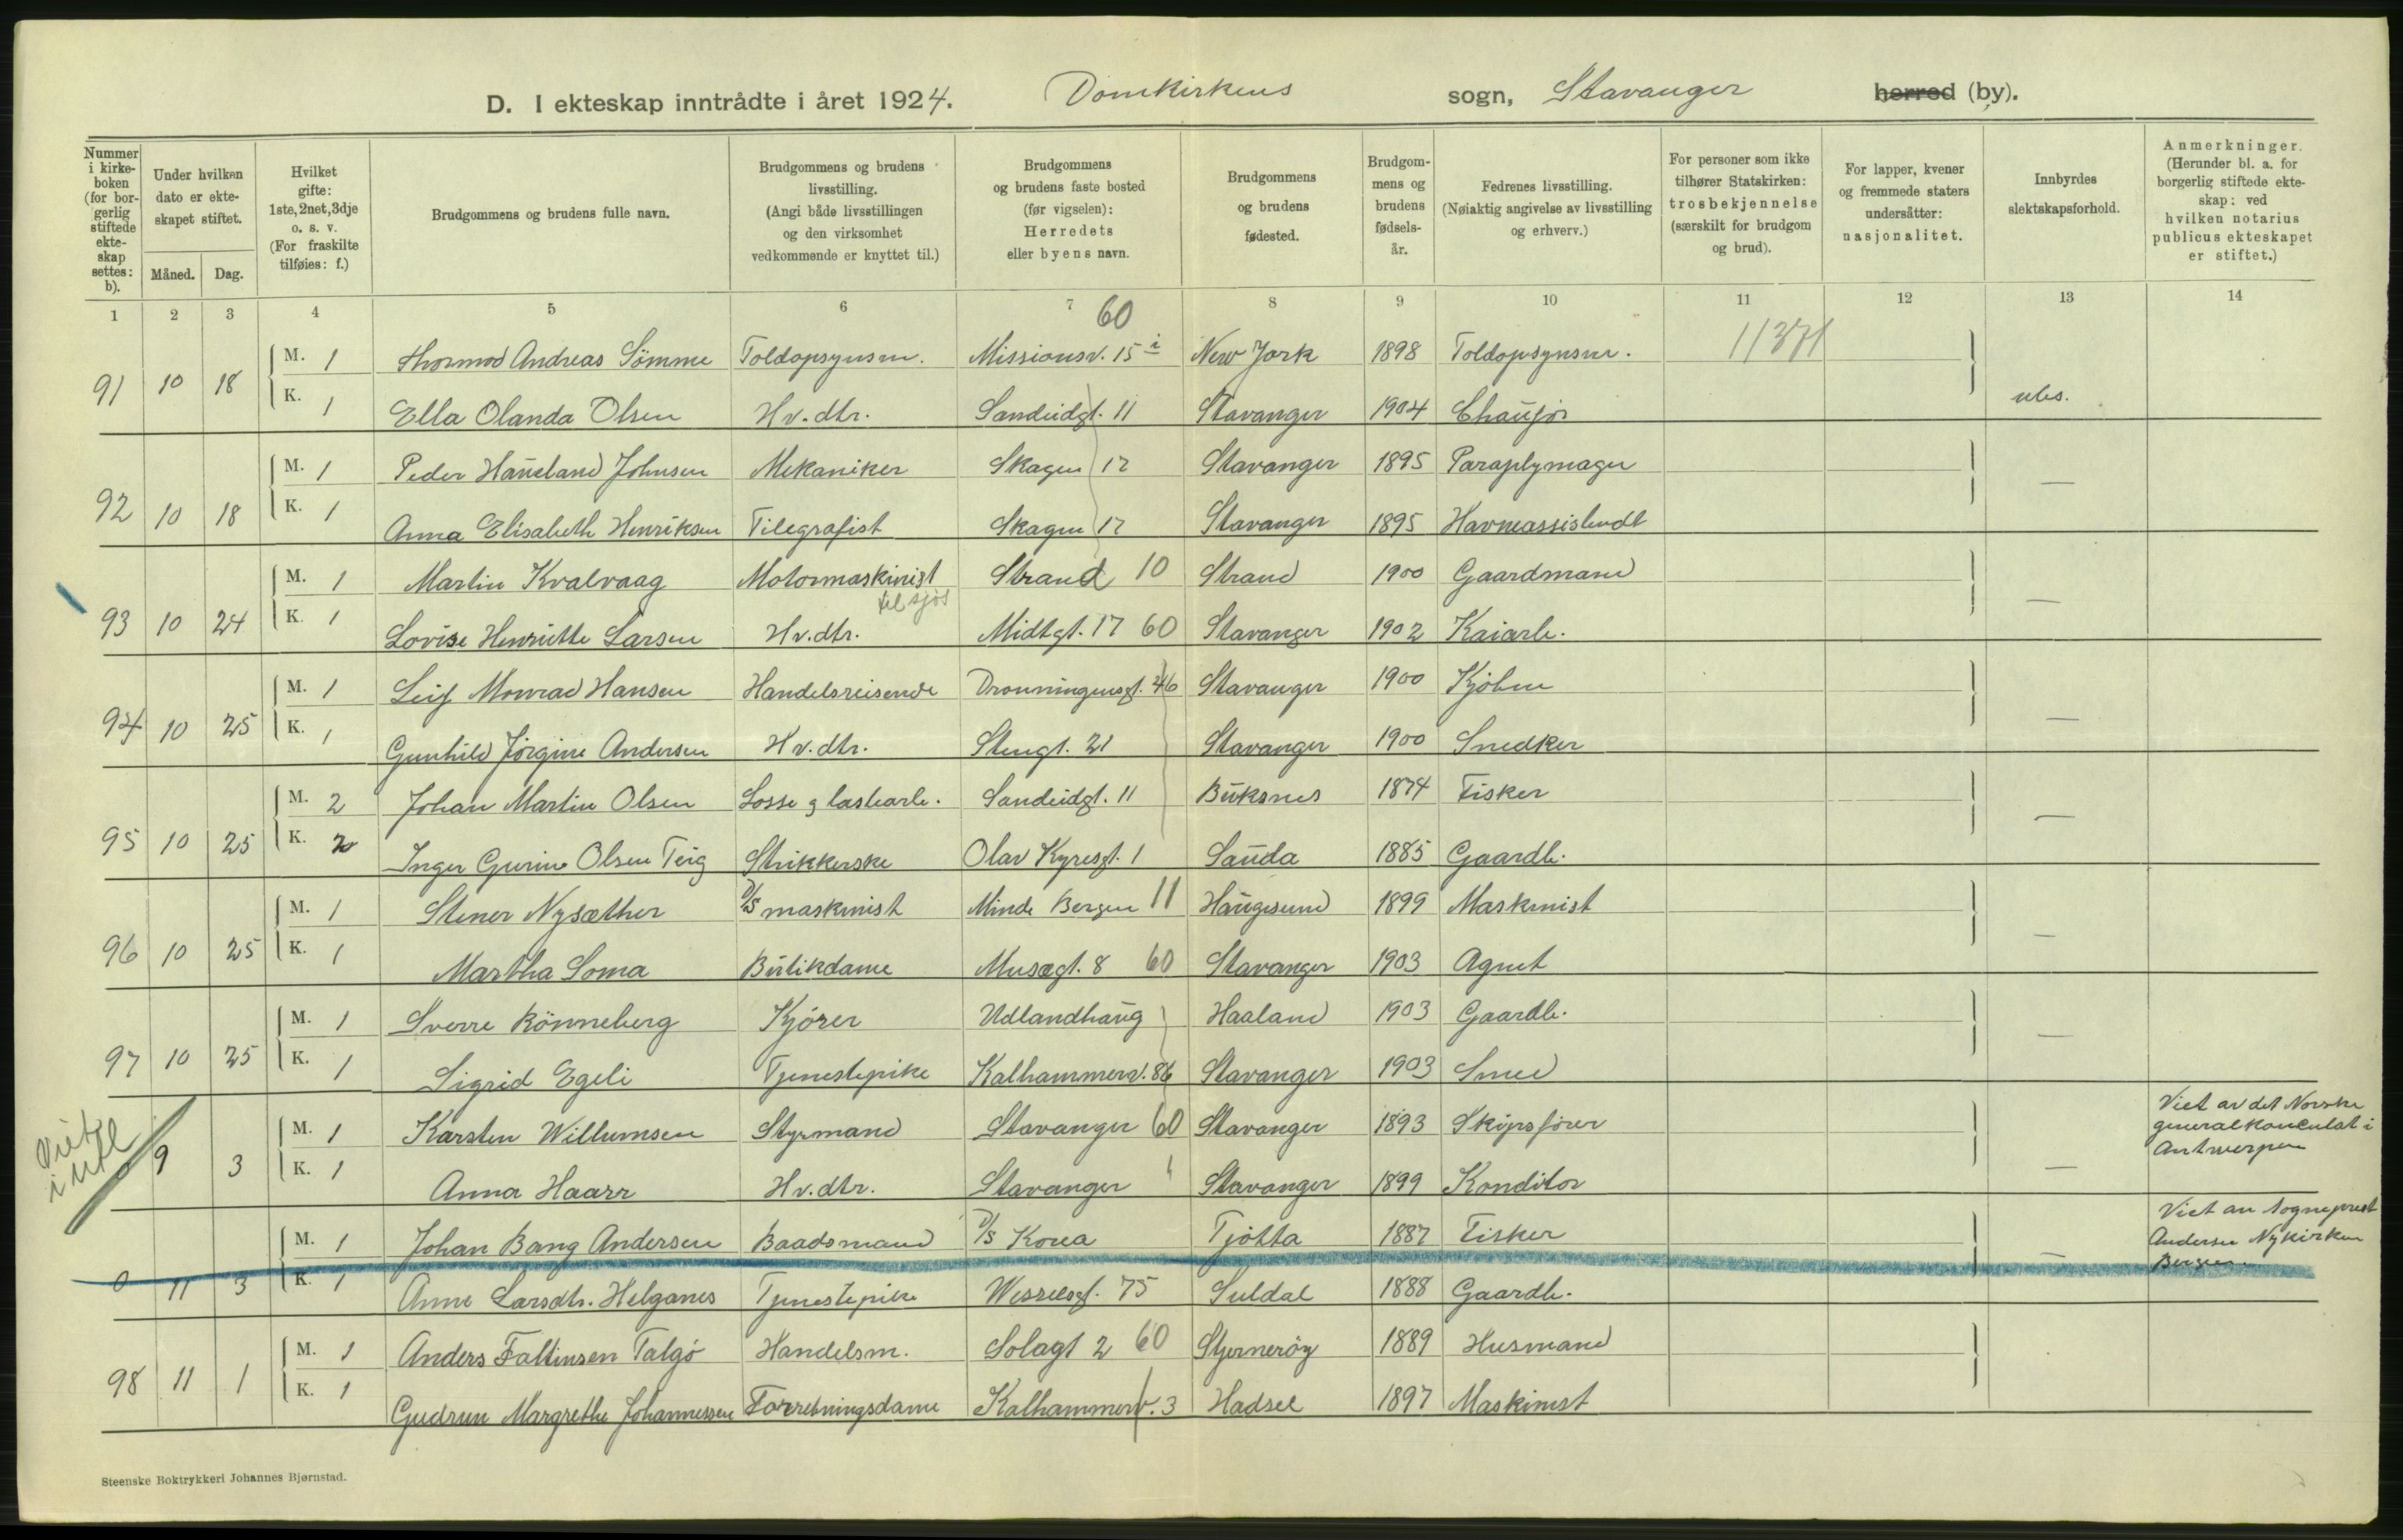 D. I ekteskap inntrådte i året 1924. Domkirkens sogn, Stavanger herred (by).
Nummer i kirke-boken (for bor-gerlig stiftede ekte-skap settes: b).
Under hvilken dato er ekte-skapet stiftet.
Måned. Dag.
Hvilket gifte: 1ste, 2net, 3dje o. s. v. (For fraskilte tilføies: f.)
Brudgommens og brudens fulle navn.
Brudgommens og brudens livsstilling. (Angi både livsstillingen og den virksomhet vedkommende er knyttet til.)
Brudgommens og brudens faste bosted (før vigselen): Herredets eller byens navn.
Brudgommens og brudens fødested.
Brudgom-mens og brudens fødsels-år.
Fedrenes livsstilling. (Nøiaktig angivelse av livsstilling og erhverv.)
For personer som ikke tilhører Statskirken: trosbekjennelse (særskilt for brudgom og brud).
For lapper, kvener og fremmede staters undersåtter: nasjonalitet.
Innbyrdes slektskapsforhold.
Anmerkninger. (Herunder bl. a. for borgerlig stiftede ekte-skap: ved hvilken notarius publicus ekteskapet er stiftet.)
1 2 3 4 5 6 7 8 9 10 11 12 13 14
60
M. 1 Thormod Andreas Sömme Toldopsynsm. Missionsv. 15 i New York 1898 Toldopsynsm. 11371
91 10 18 K. 1 Ella Olanda Olsen Hv. dtr. Sandeidgt. 11 Stavanger 1904 Chaufør ubes.
M. 1 Peder Haueland Johnsen Mekaniker Skagen 12 Stavanger 1895 Paraplymager
92 10 18 K. 1 Anna Elisabeth Henriksen Telegrafist Skagen 12 Stavanger 1895 Havneassistendt —
M. 1 Martin Kvalvaag Motormaskinist til sjøs Strand 10 Strand 1900 Gaardmand
93 10 24 K. 1 Lovise Henriette Larsen Hv. dtr. Midtgt. 17 60 Stavanger 1902 Kaiarb. —
M. 1 Leif Monrad Hansen Handelsreisende Dronningensgt. 46 Stavanger 1900 Kjøbm
94 10 25 K. 1 Gunhild Jörgine Andersen Hv. dtr. Stengt. 21 Stavanger 1900 Snedker —
M. 2 Johan Martin Olsen Losse g lastearb. Sandeidgt. 11 Buksnes 1874 Fisker
95 10 25 K. 2 Inger Gurine Olsen Teig Strikkerske Olav Kyresgt. 1 Sauda 1885 Gaardb. —
M. 1 Stener Nysæther D/S maskinist Minde Bergen 11 Haugesund 1899 Maskinist
96 10 25 K. 1 Martha Soma Butikdame Musægt. 8 60 Stavanger 1903 Agent —
M. 1 Sverre Rönneberg Kjører Udlandhaug Haaland 1903 Gaardb.
97 10 25 K. 1 Sigrid Egeli Tjenestepike Kalhammerv. 86 Stavanger 1903 Smed —
Viet i utl
M. 1 Karsten Willumsen Styrmand Stavanger 60 Stavanger 1893 Skipsfører Viet av det Norske generalkonsulat i Antwerpen
0 9 3 K. 1 Anna Haarr Hv. dtr. Stavanger Stavanger 1899 Konditor —
M. 1 Johan Bang Andersen Baadsmand D/S Korea Tjøtta 1887 Fisker Viet av sogneprest Andersen Nykirken Bergen.
0 11 3 K. 1 Anne Larsdtr. Helganes Tjenestepike Wesselsgt. 75 Suldal 1888 Gaardb. —
M. 1 Anders Faltinsen Talgø Handelsm. Solagt 2 60 Stjernerøy 1889 Husmand
98 11 1 K. 1 Gudrun Margrethe Johannessen Forretningsdame Kalhammerv. 3 Hadsel 1897 Maskinist
Steenske Boktrykkeri Johannes Bjørnstad.